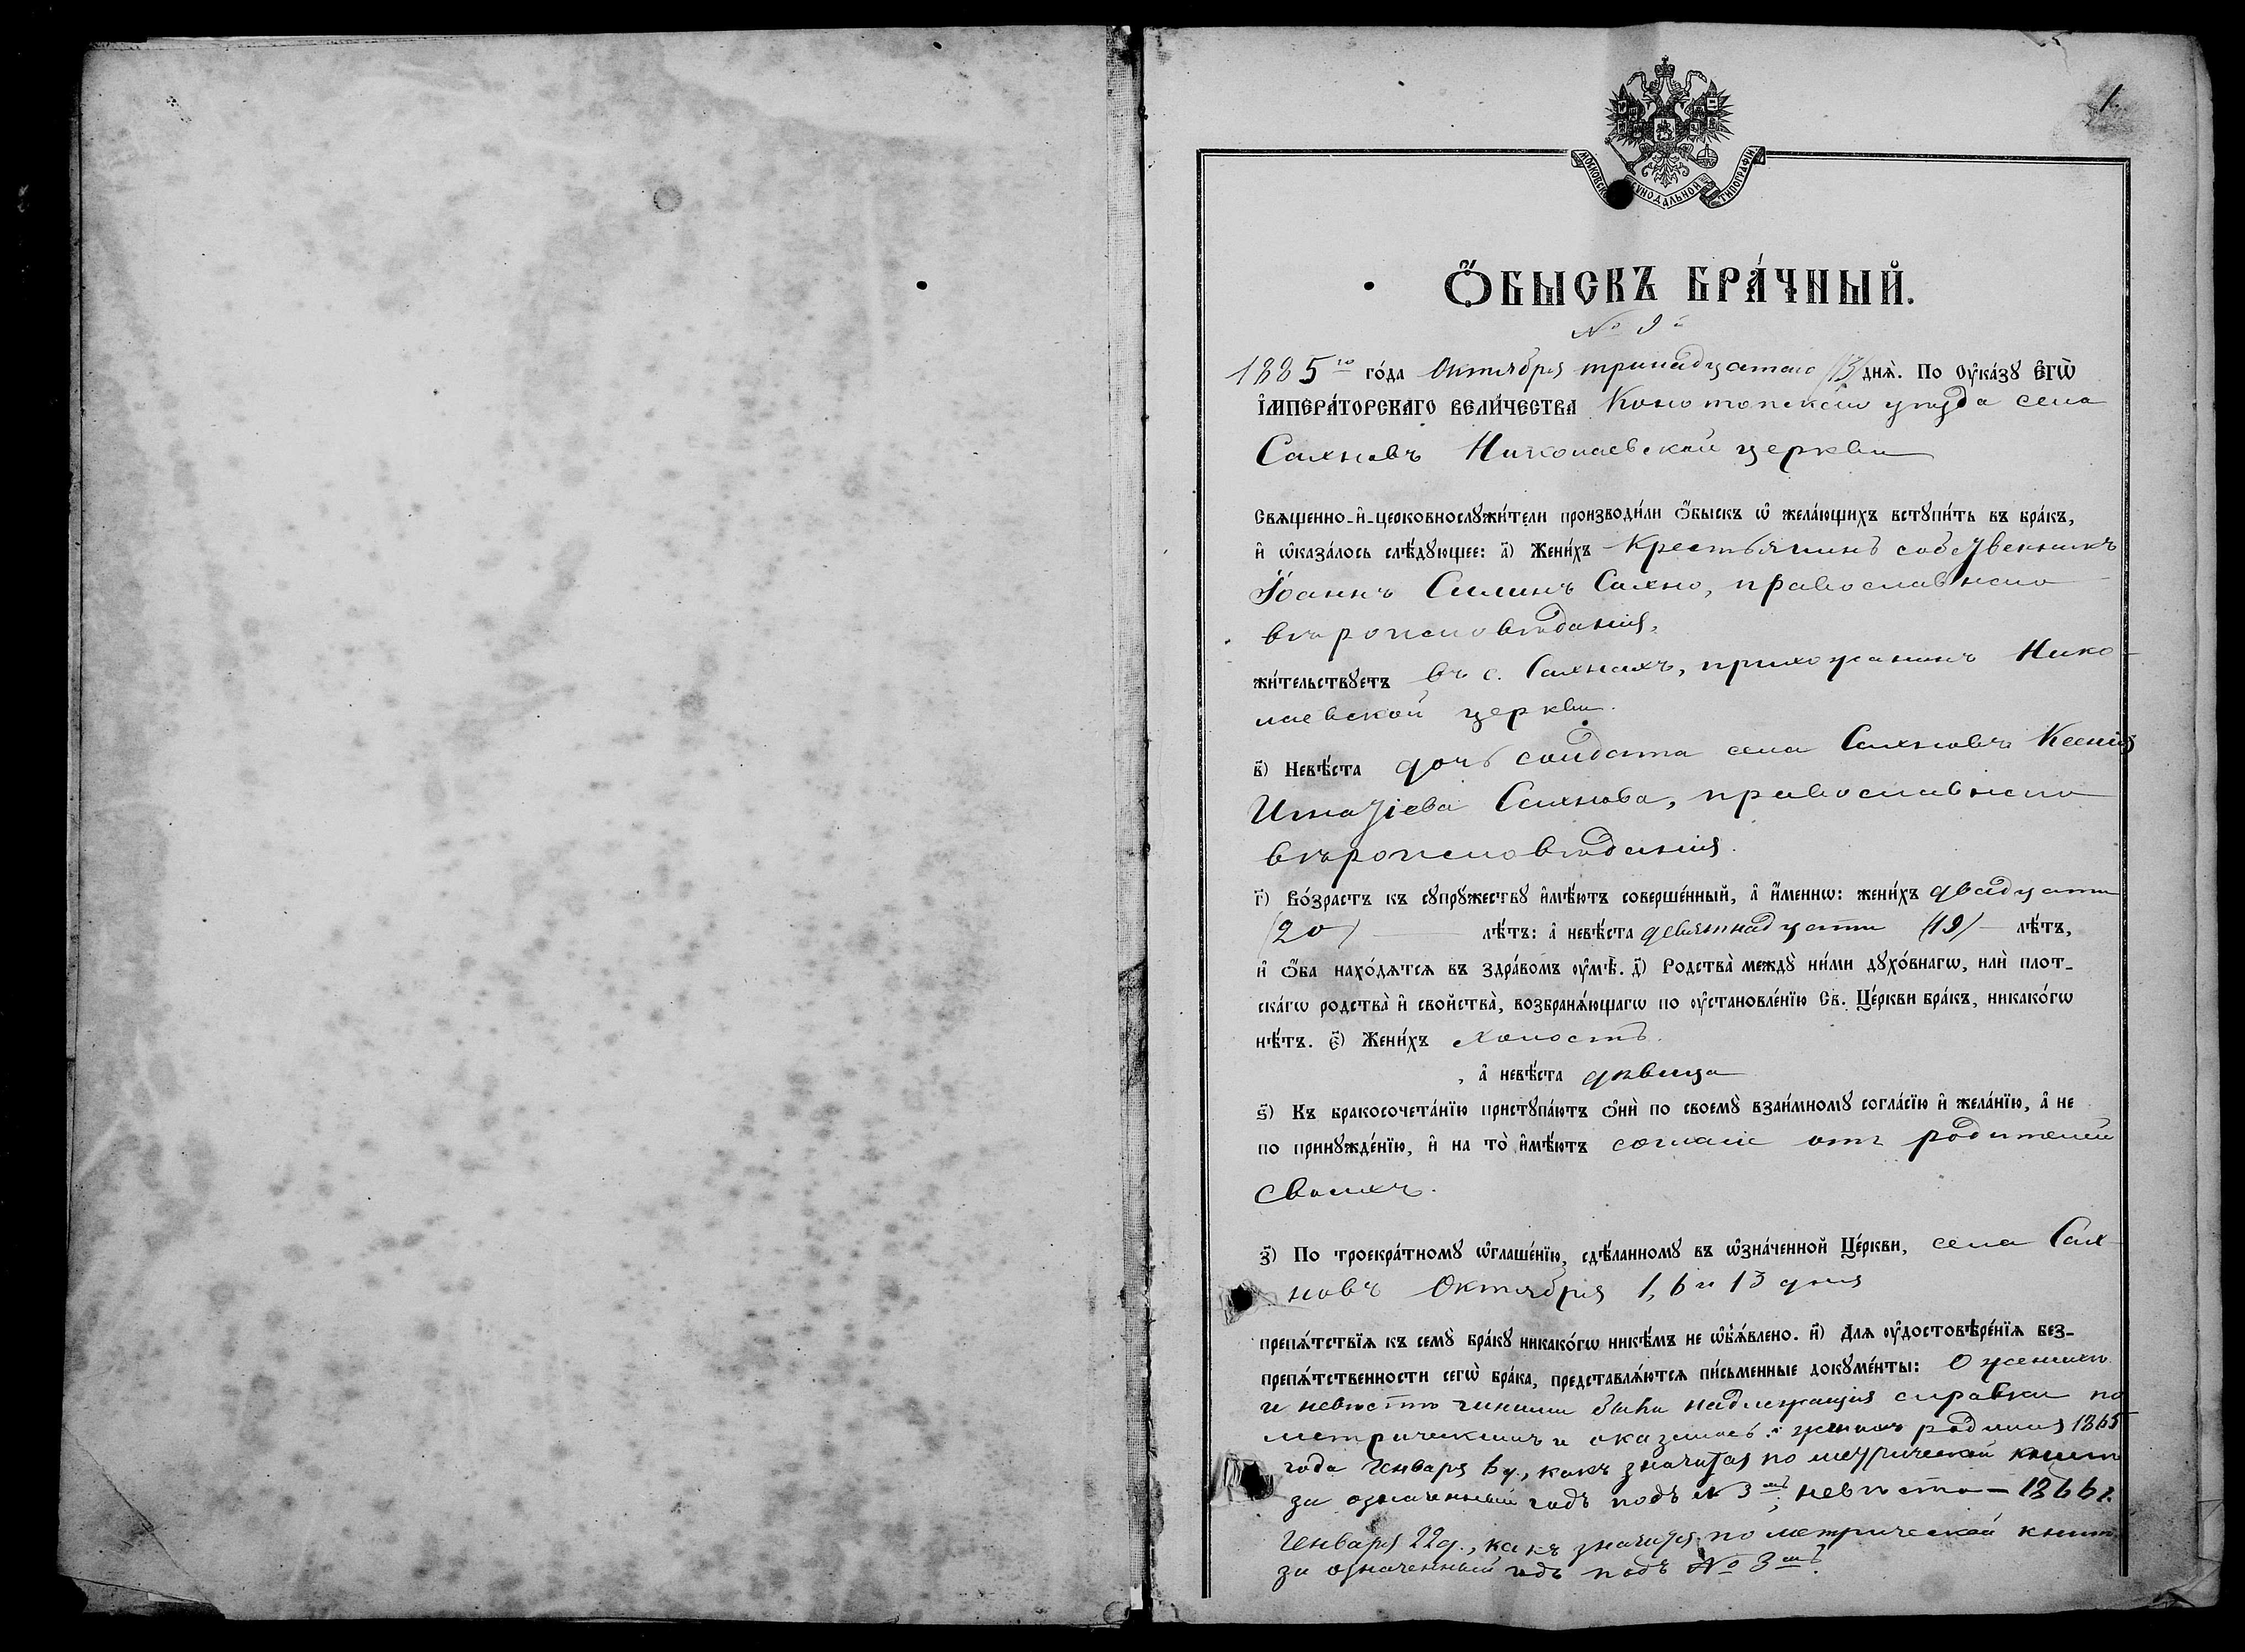 1
МОСКОВСКОЙ СѴНОДАЛЬНОЙ ТИПОГРАФІИ
Ѻ҆́БЫСКЪ БРА́ЧНЫЙ.
№ 9й
1885го го́да Октября тринадцатаго (13) днѧ̀. По Оу҆ка́зꙋ Є҆гѡ̀
І҆мпера́торскаго вели́чества Конотопскаго уѣзда села
Сахновъ Николаевской церкви
Свѧщенно-и҆-церковнослꙋжи́тели производи́ли ѻ҆́быскъ ѡ҆ жела́ющихъ встꙋпи́ть въ бра́къ,
и҆ ѡ҆каза́лось слѣ́дꙋющее: а҃) Жени́хъ Крестьянинъ собственникъ
Іоаннъ Силинъ Сахно, православнаго
вѣроисповѣданія,
жи́тельствꙋетъ въ с. Сахнахъ, прихожанинъ Нико-
лаевской церкви.
в҃) Невѣ́ста дочь солдата села Сахновъ Ксенія
Игнатіева Сахнова, православнаго
вѣроисповѣданія.
г҃) Во́зрастъ къ сꙋпрꙋ́жествꙋ и҆мѣ́ютъ соверше́нный, а҆ и҆́менно: жени́хъ двадцати
(20) лѣ́тъ: а҆ невѣ́ста девятнадцати (19) лѣ́тъ,
и҆ ѻ҆́ба нахо́дѧтсѧ въ здра́вомъ оу҆мѣ̀. д҃) Родства̀ междꙋ̀ ни́ми дꙋхо́внагѡ, илѝ плот-
ска́гѡ родства̀ и҆ свойства̀, возбранѧ́ющагѡ по оу҆становле́нїю Св. Це́ркви бра́къ, никако́гѡ
нѣ́тъ. є҃) Жени́хъ холостъ.
, а҆ невѣ́ста дѣвица
ѕ҃) Къ бракосочета́нїю пристꙋпа́ютъ ѻ҆нѝ по своемꙋ̀ взаи́мномꙋ согла́сїю и҆ жела́нїю, а҆ не
по принꙋжде́нїю, и҆ на то̀ и҆мѣ́ютъ согласіе отъ родителей
своихъ.
з҃) По троекра́тномꙋ ѡ҆глаше́нїю, сдѣ́ланномꙋ въ ѡ҆зна́ченной Це́ркви, села Сах-
новъ Октября 1, 6 и 13 дня
препѧ́тствїѧ къ семꙋ̀ бра́кꙋ никако́гѡ никѣ́мъ не ѡ҆бъѧ́влено. и҃) Длѧ оу҆достовѣре́нїѧ без-
препѧ́тственности сегѡ̀ бра́ка, представлѧ́ютсѧ пи́сьменные докꙋме́нты: О женихѣ
и невѣстѣ чинимы были надлежащія справки по
метрическимъ и оказалось: женихъ родился 1865
года Генваря 6 д., какъ значится по метрической книгѣ
за означенный годъ подъ № 3мъ; невѣста — 1866 г.
Генваря 22 д., какъ значится по метрической книгѣ
за означенный годъ подъ № 3мъ.